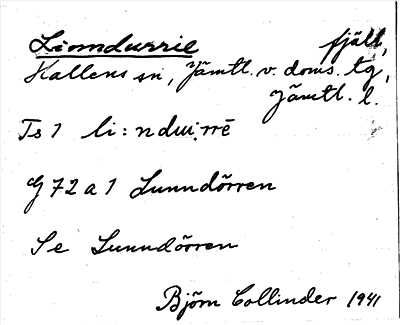 Liomdurrie fjäll,
Kallens sn, Jämtl. v. doms. tg,
Jämtl. l.
Ts 1 li:ndu:rrē
G 72 a 1 Lunndörren
Se Lunndörren
Björn Collinder 1941